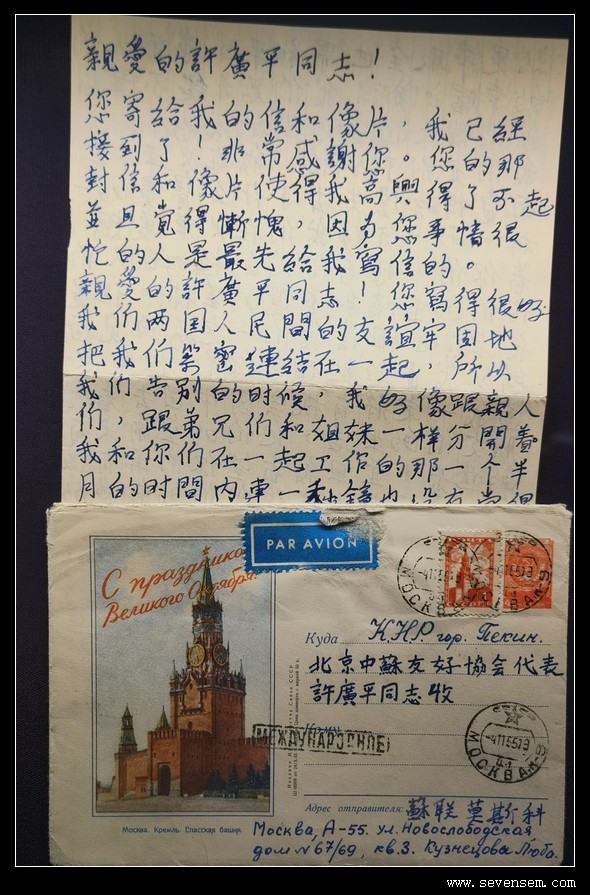 親愛的許廣平同志！
您寄給我的信和像片，我已經
接到了！非常感謝您。您的那
封信和像片使得我高興得了不起
並且覺得慚愧，因为您事情很
忙的人是最先給我寫信的。
親愛的許廣平同志！您寫得很好
我们两国人民間的友誼牢固地
把我们紧密連結在一起，所以
我们告别的时候，我好像跟親人
们，跟弟兄们和姐妹一样分開着
我和你们在一起工作的那一个半
月的时間内連一
PAR AVION
С праздником
Великого Октября!
МОСКВА
МОСКВА
Куда К.Н.Р. гор. Пекин.
北京中蘇友好協会代表
許廣平同志收
Кому
МЕЖДУНАРОДНОЕ
МОСКВА
Адрес отправителя: 蘇联莫斯科
Москва, А-55. ул. Новослободская
дом N 67/69, кв. 3. Кузнецова Люба.
Москва. Кремль. Спасская башня.
www.sevensem.com